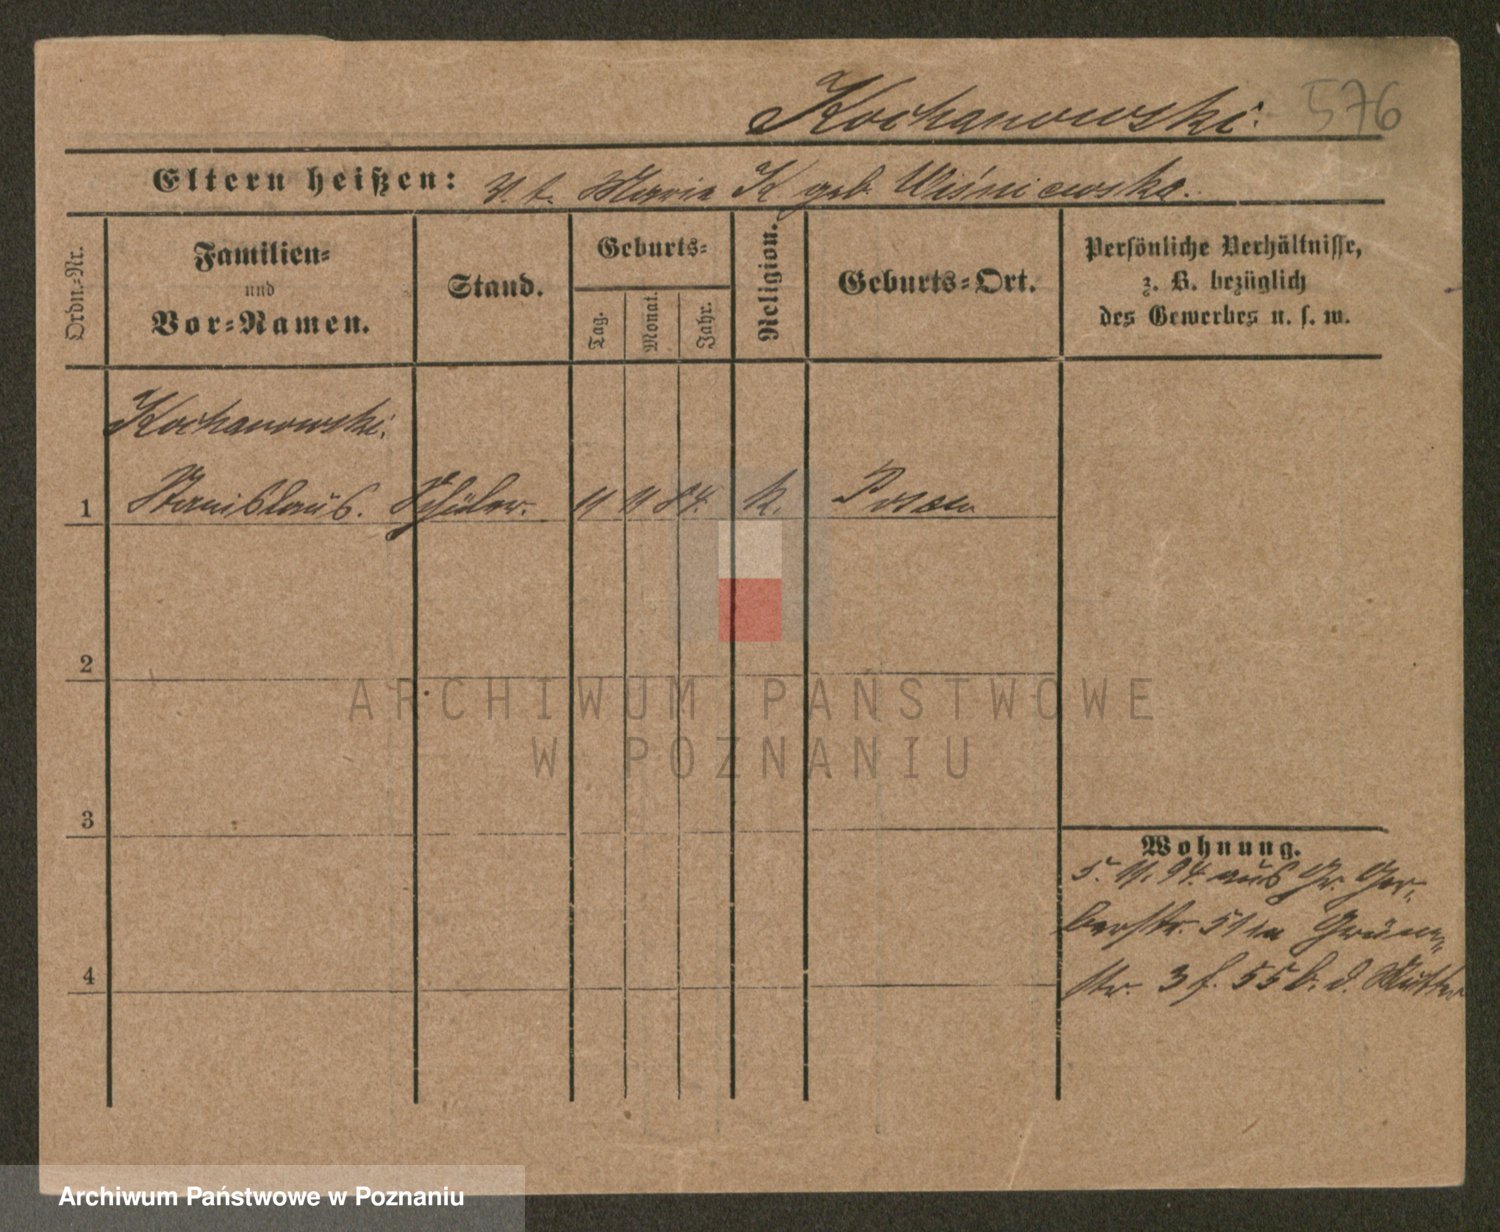 Kochanowski. 576
Eltern heißen: V. t. Marie K geb. Wiśniewska.
Ordn.=Nr.
Familien=
und
Vor=Namen.
Stand.
Geburts=
Tag.
Monat.
Jahr.
Religion.
Geburts=Ort.
Persönliche Verhältnisse,
z. B. bezüglich
des Gewerbes u. s. w.
Kochanowski.
1 Stanislaus. Schüler. 11 11 84. k. Posen
2
3
4
Wohnung.
5. 11. 94. aus Gr. Ger-
berstr. 51 in Grün-
str. 3 f. 55 b. d. Mutter
ARCHIWUM PAŃSTWOWE
W POZNANIU
Archiwum Państwowe w Poznaniu